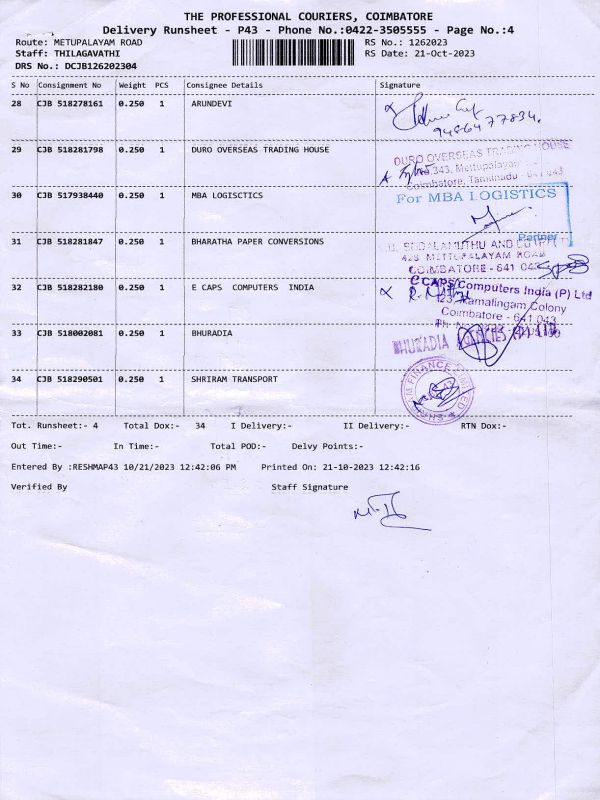 THE PROFESSIONAL COURIERS, COIMBATORE
Delivery Runsheet - P43 - Phone No.:0422-3505555 - Page No.:4
Route: METUPALAYAM ROAD RS No.: 1262023
Staff: THILAGAVATHI RS Date: 21-Oct-2023
DRS No.: DCJB126202304
S No Consignment No Weight PCS Consignee Details Signature
28 CJB 518278161 0.250 1 ARUNDEVI
9486477834.
29 CJB 518281798 0.250 1 DURO OVERSEAS TRADING HOUSE
DURO OVERSEAS TRADING HOUSE
No.343, Mettupalayam
Coimbatore, Tamilnadu - 641 043
30 CJB 517938440 0.250 1 MBA LOGISCTICS
For MBA LOGISTICS
Partner
31 CJB 518281847 0.250 1 BHARATHA PAPER CONVERSIONS
AND CO
428 METTUPALAYAM ROAD
COIMBATORE - 641 043
32 CJB 518282180 0.250 1 E CAPS COMPUTERS INDIA
eCAPS Computers India (P) Ltd
123, Ramalingam Colony
Coimbatore - 641 043
33 CJB 518002081 0.250 1 BHURADIA
BHURADIA
34 CJB 518290501 0.250 1 SHRIRAM TRANSPORT
FINANCE LIMITED
Tot. Runsheet:- 4 Total Dox:- 34 I Delivery:- II Delivery:- RTN Dox:-
Out Time:- In Time:- Total POD:- Delvy Points:-
Entered By :RESHMAP43 10/21/2023 12:42:06 PM Printed On: 21-10-2023 12:42:16
Verified By Staff Signature